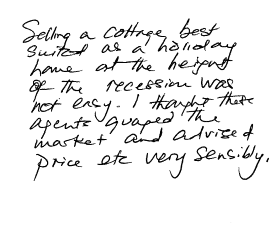 Selling a cottage best
suited as a holiday
home at the height
of the recession was
not easy. I thought these
agents guaped the
market and advised
price etc very sensibly.